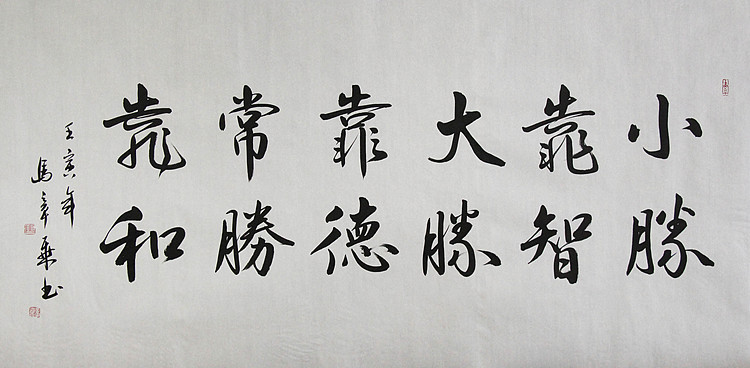 小勝
靠智
大勝
靠德
常勝
靠和
壬寅年
馬章乘書